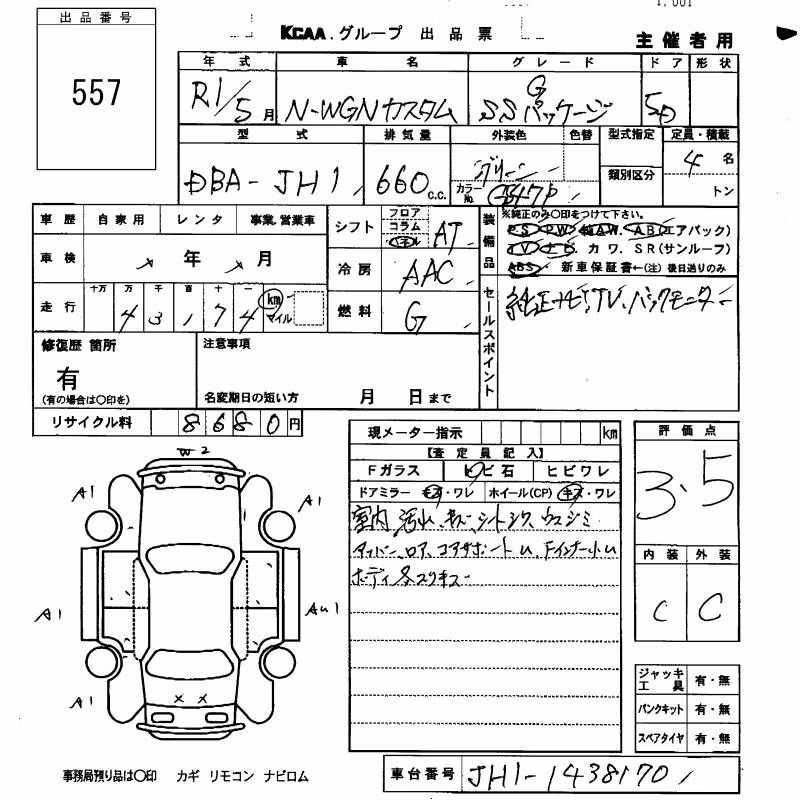 1.001
出品番号
557
KCAA.グループ 出品票
主催者用
年式 車名 グレード ドア 形状
R1/5月 N-WGNカスタム G SSパッケージ 5D
型式 排気量 外装色 色替 型式指定 定員・積載
DBA-JH1 660c.c. グリーン 類別区分 4名
カラーNo. トン
車歴 自家用 レンタ 事業.営業車
シフト フロア コラム AT
装備品 ※純正のみ〇印をつけて下さい。
PS PW 純AW. AB(エアバック)
TV ナビ. カワ. SR(サンルーフ)
ABS 新車保証書←(注)後日送りのみ
車検 年 月
冷房 AAC
走行 十万 万 千 百 十 一 km マイル
4 3, 1 7 4
燃料 G
セールスポイント
純正ナビ,TV.バックモニター
修復歴 箇所
有
(有の場合は〇印を)
注意事項
名変期日の短い方 月 日まで
リサイクル料 8680円
現メーター指示 km
評価点
3.5
【査定員記入】
Fガラス トビ石 ヒビワレ
ドアミラー キズ・ワレ ホイール(CP) キズ・ワレ
室内汚れ、キズ、シートシワ、ウスジミ
コアサポートU、Fインナー小U
ボディ各スリキズ
内装 外装
C C
W2
A1 A1
A1 AU1
A1 A1
X X
ジャッキ工具 有・無
パンクキット 有・無
スペアタイヤ 有・無
事務局預り品は〇印 カギ リモコン ナビロム
車台番号 JH1-1438170